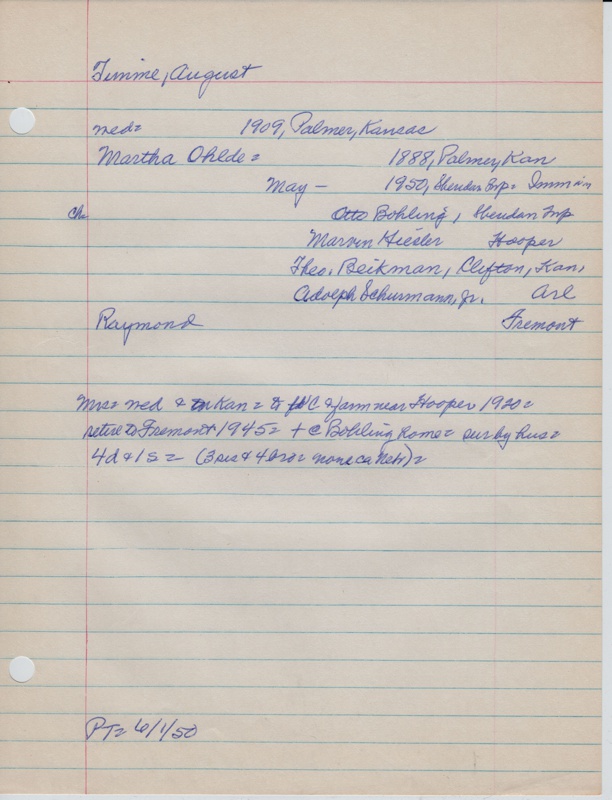 Timme, August
wed= 1909, Palmer, Kansas
Martha Ohlde= 1888, Palmer, Kan
May - 1950, Sheridan Twp=
ch= Otto Bohling, Sheridan Twp
Marvin Hiesler Hooper
Theo. Beikman, Clifton, Kan,
Adolph Schurmann, Jr. Arl
Raymond Fremont
Mrs= wed & in Kan= to C & farm near Hooper 1920=
retire to Fremont 1945= + c Bohling home= sur by hus=
4d & 1s= (3 sis & 4 bro= none ca Nebr)=
PT= 6/1/50